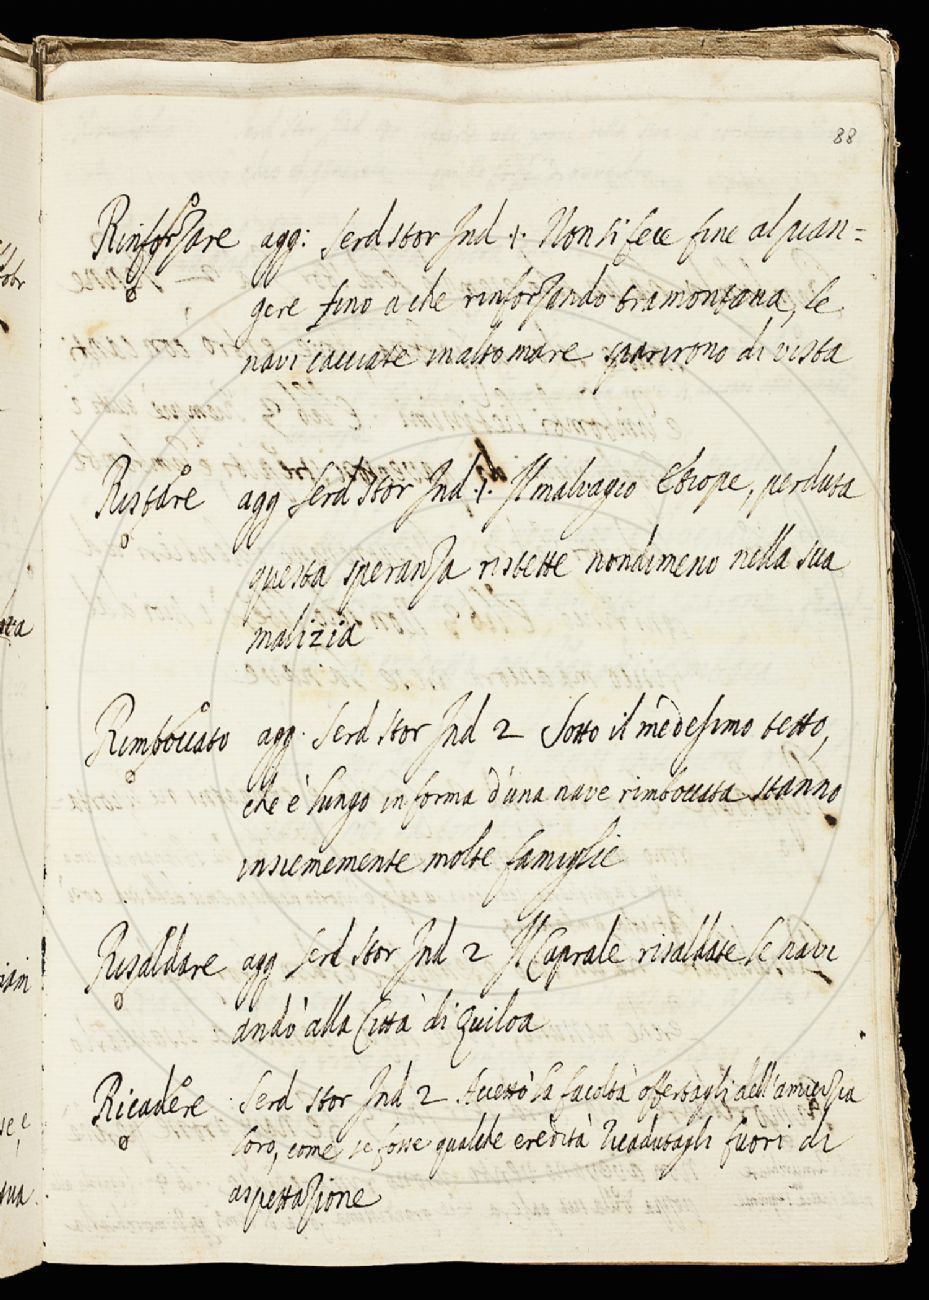 88
Rinforzare agg: Serd Stor Ind 1: Non si fece fine al pian=
gere fino a che rinforzando tramontana, le
navi cacciate in alto mare sparirono di vista
Ristare agg Serd Stor Ind 1. Il malvagio Etiope, perduta
questa speranza ristette nondimeno nella sua
malizia
Rimboccato agg. Serd Stor Ind 2 Sotto il medesimo tetto,
che è lungo in forma d'una nave rimboccata stanno
insiememente molte famiglie
Risaldare agg Serd Stor Ind 2 Il Caprale risaldate le navi
andò alla Città di Quiloa
Ricadere Serd Stor Ind 2 Accettò la facoltà offertagli dell'amicizia
loro, come se fosse qualche eredità ricadutagli fuori di
aspettazione